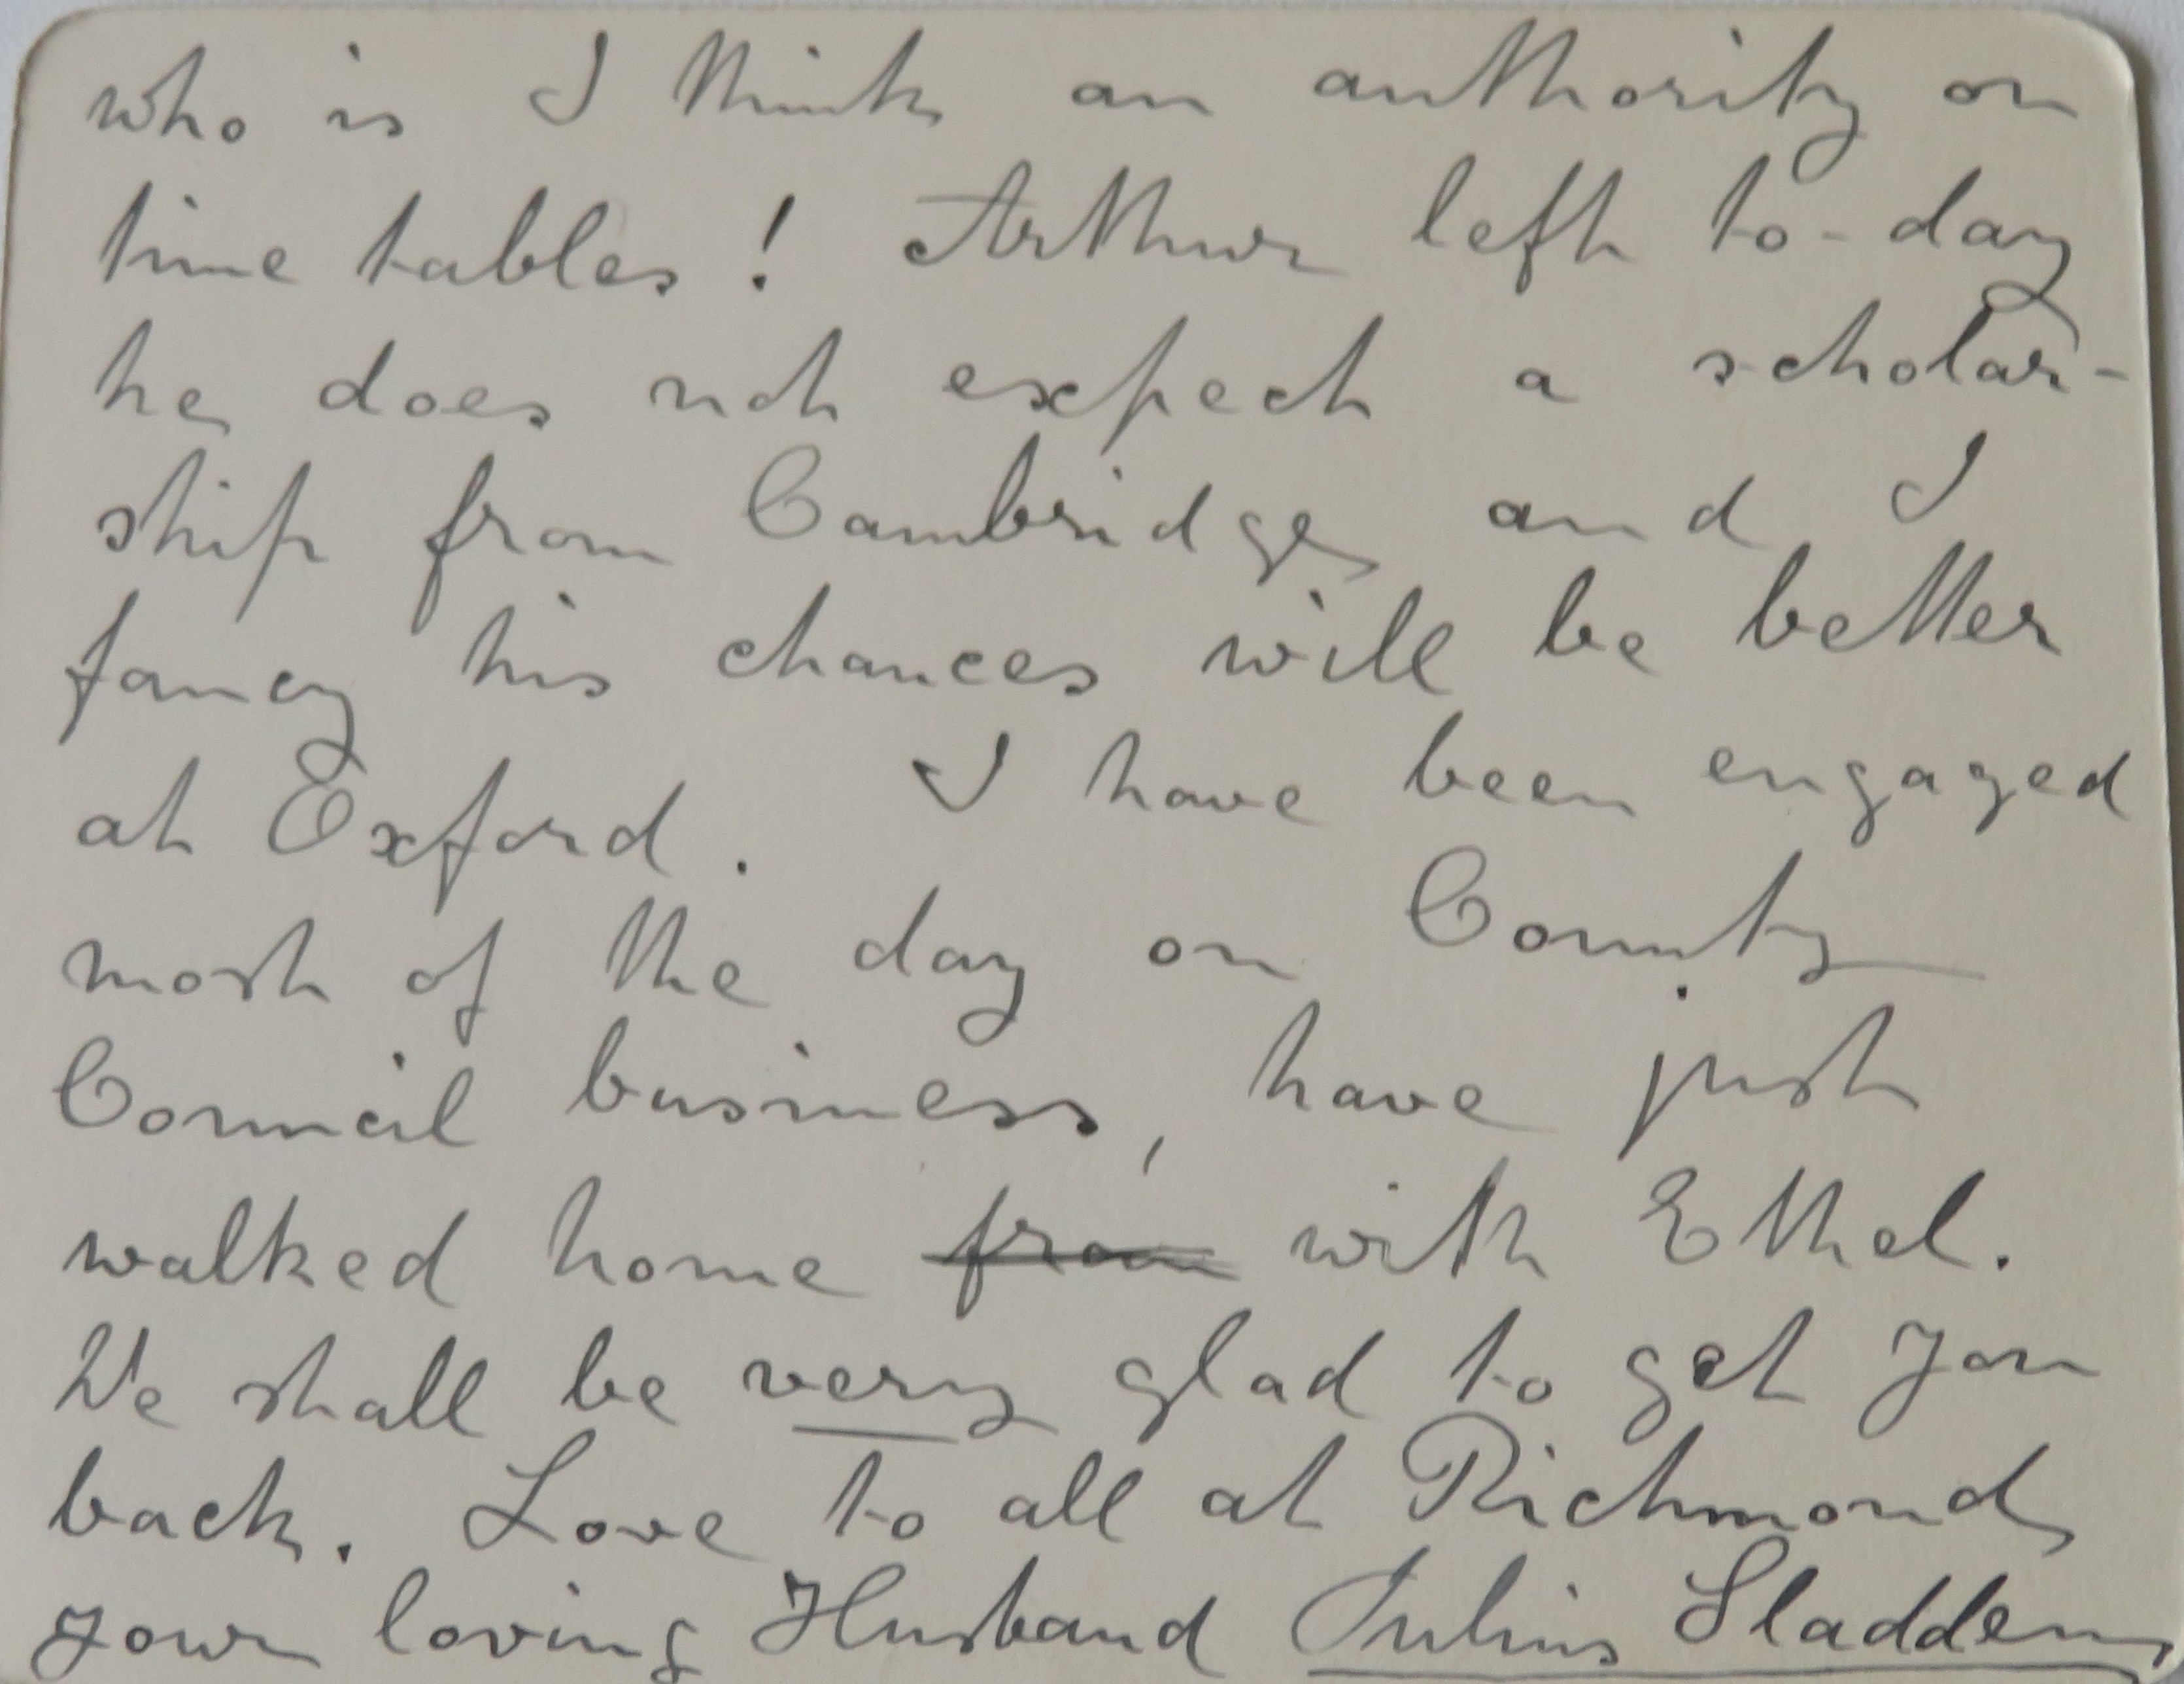 who is I think an authority on
time tables! Arthur left to-day
he does not expect a scholar-
ship from Cambridge and I
fancy his chances will be better
at Exford. I have been engaged
most of the day on County
Council business, have just
walked home from with Ethel.
We shall be very glad to get you
back. Love to all at Richmond
your loving Husband Julius Sladden